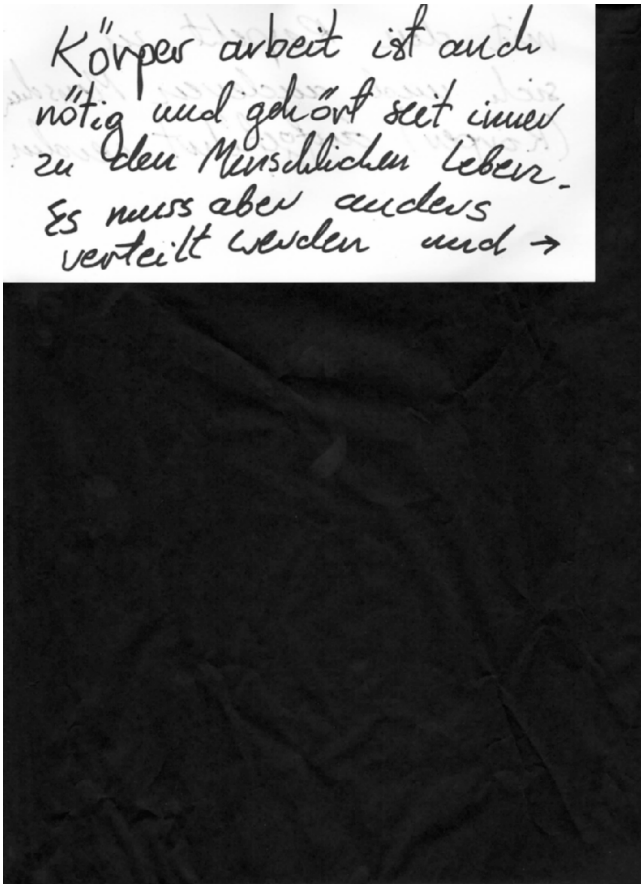 Körper arbeit ist auch
nötig und gehört seit immer
zu den Menschlichen Leben.
Es muss aber anders
verteilt werden und →